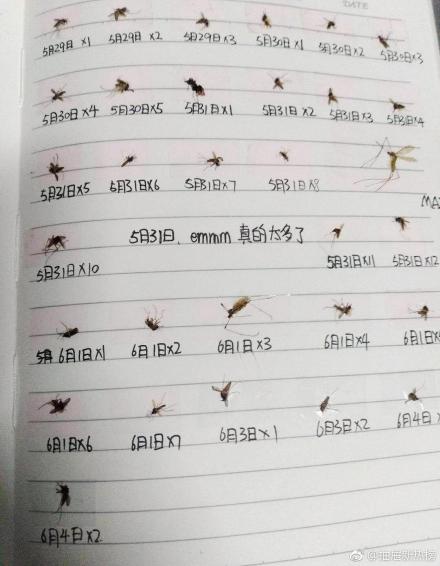 DATE
5月29日 x1 5月29日 x2 5月29日 x3 5月30日 x1 5月30日 x2 5月30日 x3
5月30日 x4 5月30日 x5 5月31日 x1 5月31日 x2 5月31日 x3 5月31日 x4
5月31日 x5 5月31日 x6 5月31日 x7 5月31日 x8
MA
5月31日 x10 5月31日, emmm 真的太多了 5月31日 x11 5月31日 x12
6月1日 x1 6月1日 x2 6月1日 x3 6月1日 x4 6月1日
6月1日 x6 6月1日 x7 6月3日 x1 6月3日 x2 6月4日
6月4日 x2